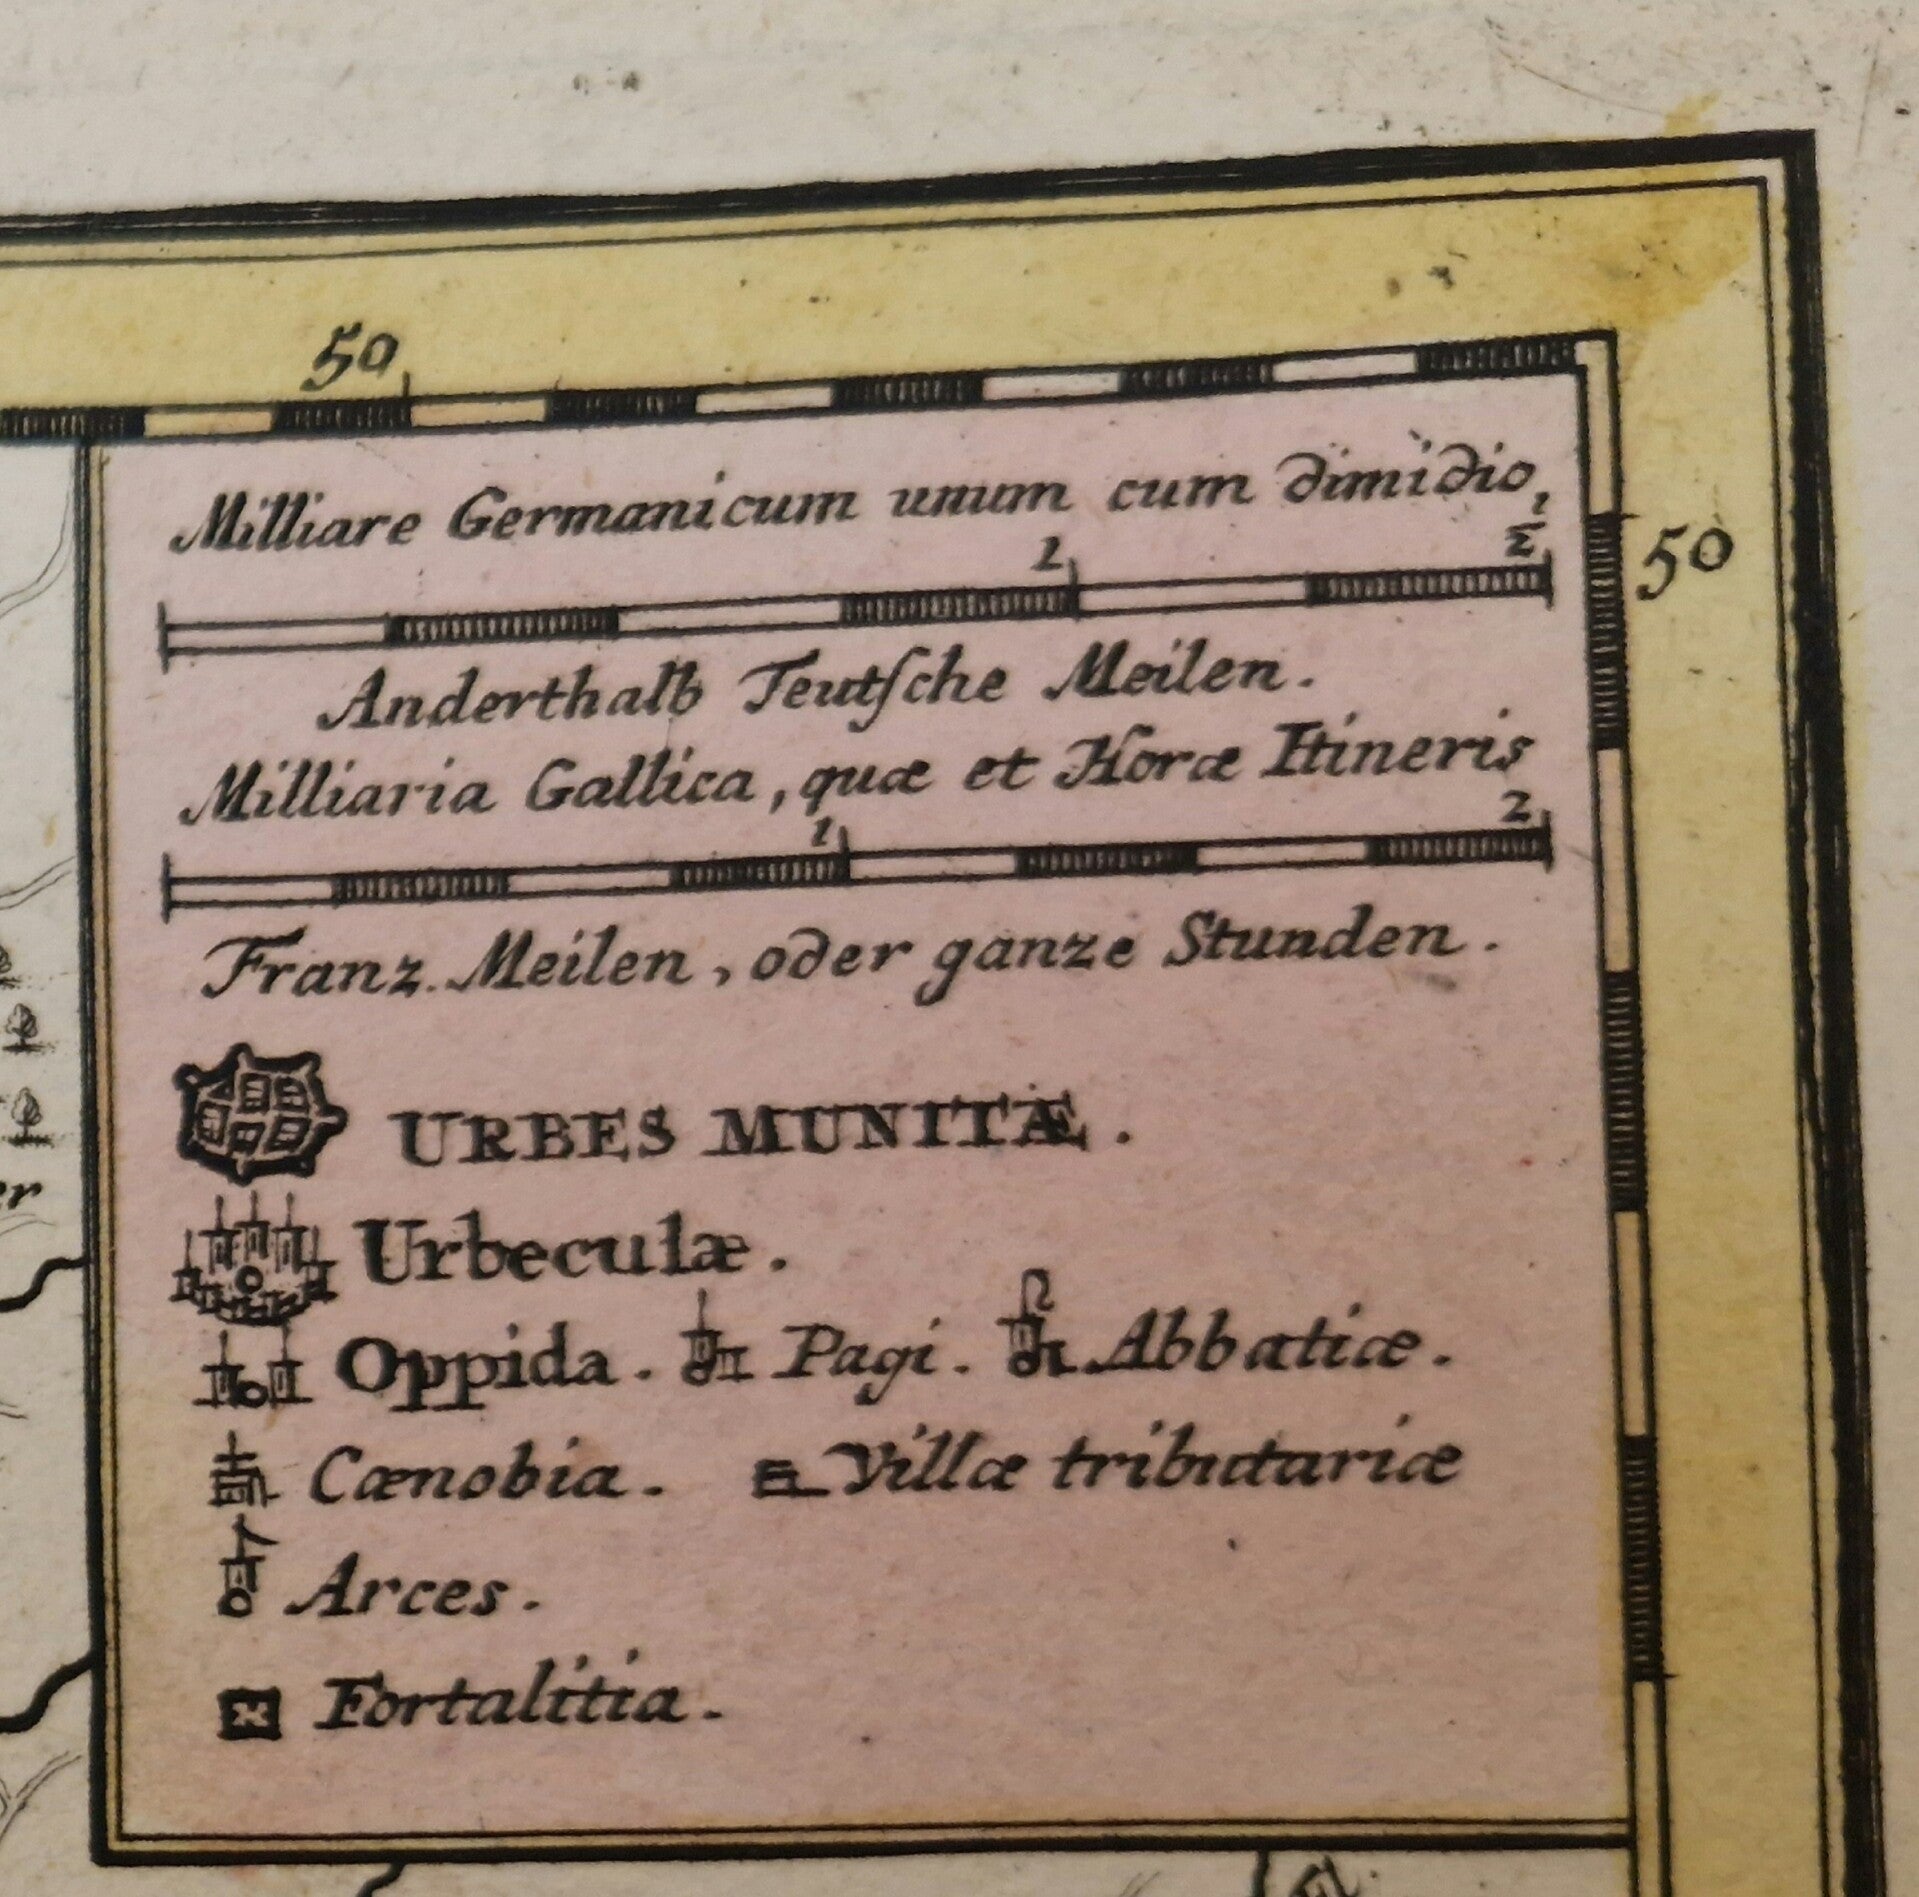 50
Milliare Germanicum unum cum dimidio,
1 1/2
50
Anderthalb Teutſche Meilen.
Milliaria Gallica, quæ et Horæ Itineris
1 2
Franz. Meilen, oder ganze Stunden.
URBES MUNITÆ.
Urbeculæ.
Oppida. Pagi. Abbatiæ.
Cænobia. Villæ tributariæ
Arces.
Fortalitia.